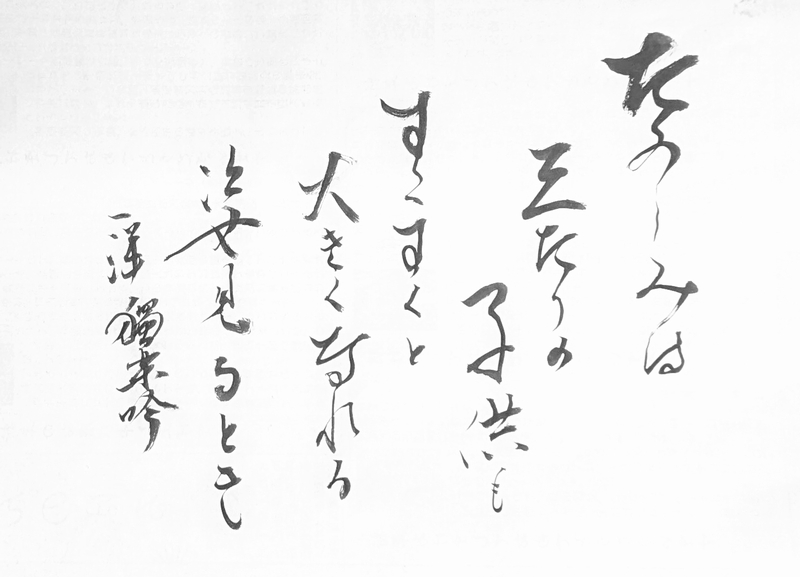 たのしみは
三たりの
子供も
すくすくと
大きくなれる
姿見るとき
獨楽吟